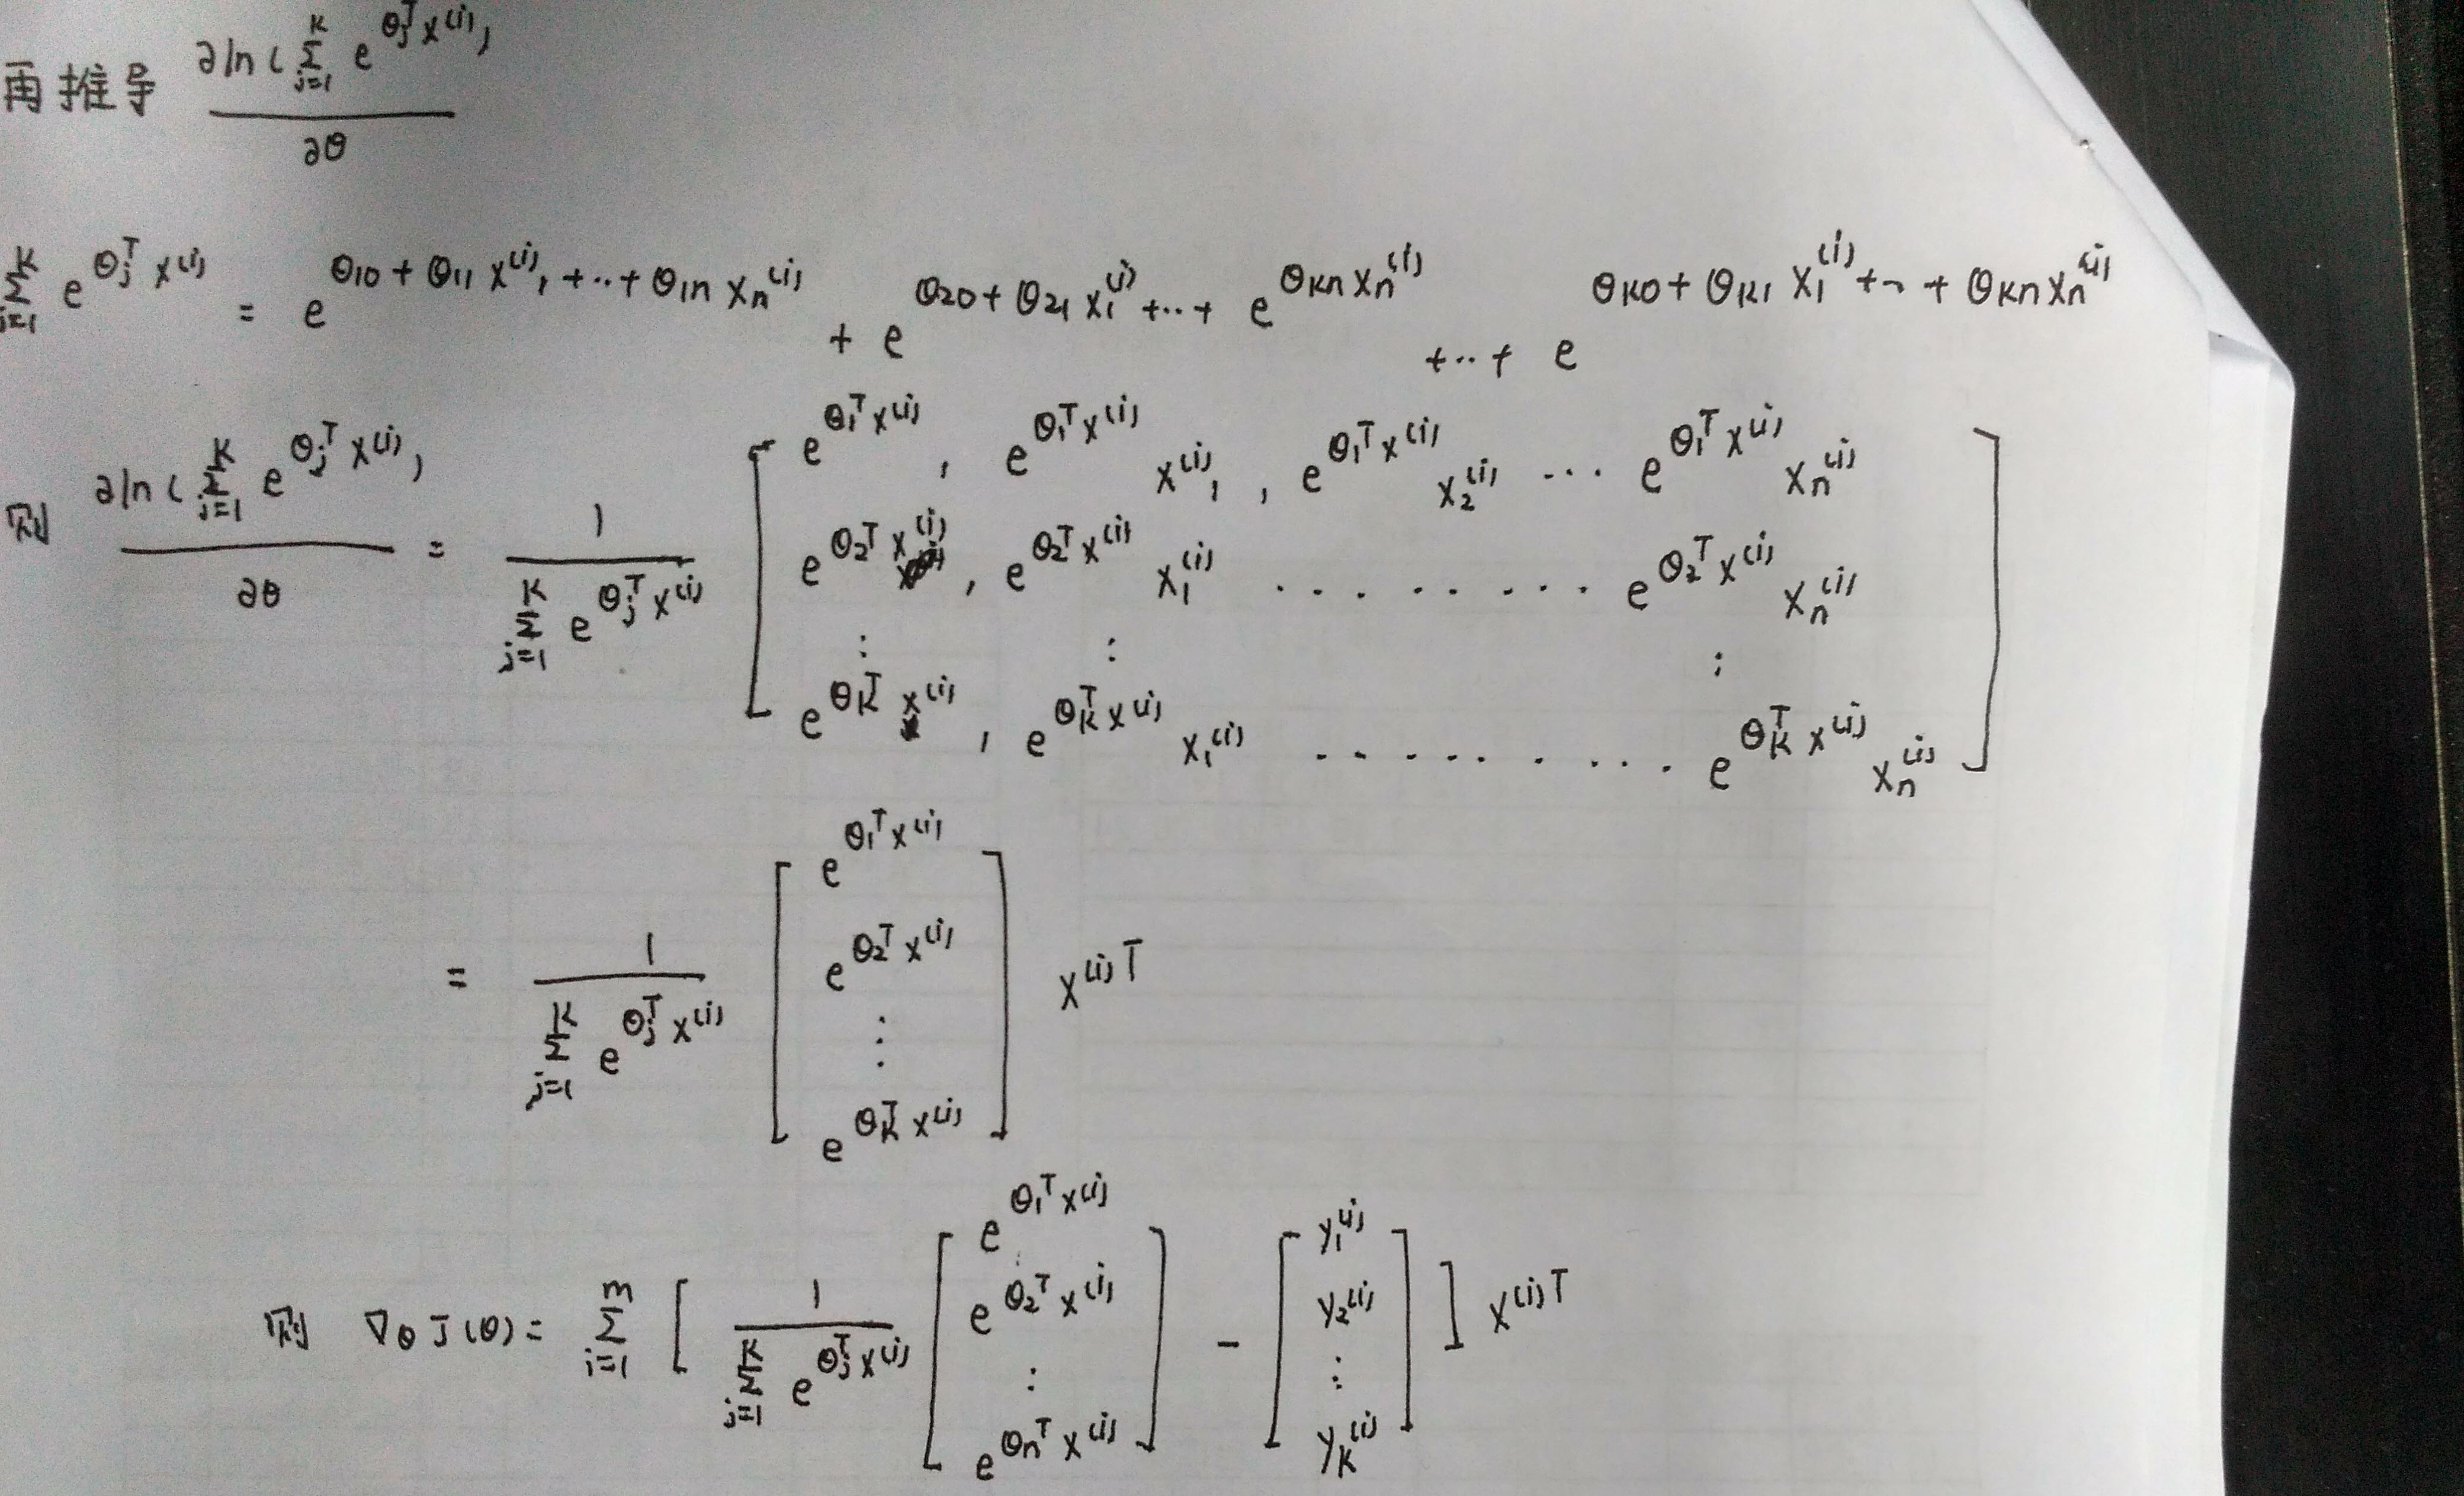 再推导 ∂ln(∑_{j=1}^{K} e^{θ_j^T x^{(i)}}) / ∂θ
∑_{j=1}^{K} e^{θ_j^T x^{(i)}} = e^{θ_{10} + θ_{11} x^{(i)}_1 + ··· + θ_{1n} x_n^{(i)}} + e^{θ_{20} + θ_{21} x_1^{(i)} + ··· + e^{θ_{Kn} x_n^{(i)}}} + ··· + e^{θ_{K0} + θ_{K1} x_1^{(i)} + ·· + θ_{Kn} x_n^{(i)}}
则 ∂ln(∑_{j=1}^{K} e^{θ_j^T x^{(i)}}) / ∂θ = 1 / ∑_{j=1}^{K} e^{θ_j^T x^{(i)}} [ e^{θ_1^T x^{(i)}} , e^{θ_1^T x^{(i)}} x^{(i)}_1 , e^{θ_1^T x^{(i)}} x_2^{(i)} ··· e^{θ_1^T x^{(i)}} x_n^{(i)}
e^{θ_2^T x^{(i)}} , e^{θ_2^T x^{(i)}} x_1^{(i)} ········ e^{θ_2^T x^{(i)}} x_n^{(i)}
: : :
e^{θ_K^T x^{(i)}} , e^{θ_K^T x^{(i)}} x_1^{(i)} ········ e^{θ_K^T x^{(i)}} x_n^{(i)} ]
= 1 / ∑_{j=1}^{K} e^{θ_j^T x^{(i)}} [ e^{θ_1^T x^{(i)}}
e^{θ_2^T x^{(i)}}
⋮
e^{θ_K^T x^{(i)}} ] x^{(i)T}
则 ∇_θ J(θ) = ∑_{i=1}^{m} [ 1 / ∑_{j=1}^{K} e^{θ_j^T x^{(i)}} [ e^{θ_1^T x^{(i)}} e^{θ_2^T x^{(i)}} ⋮ e^{θ_n^T x^{(i)}} ] - [ y_1^{(i)} y_2^{(i)} ⋮ y_K^{(i)} ] ] x^{(i)T}